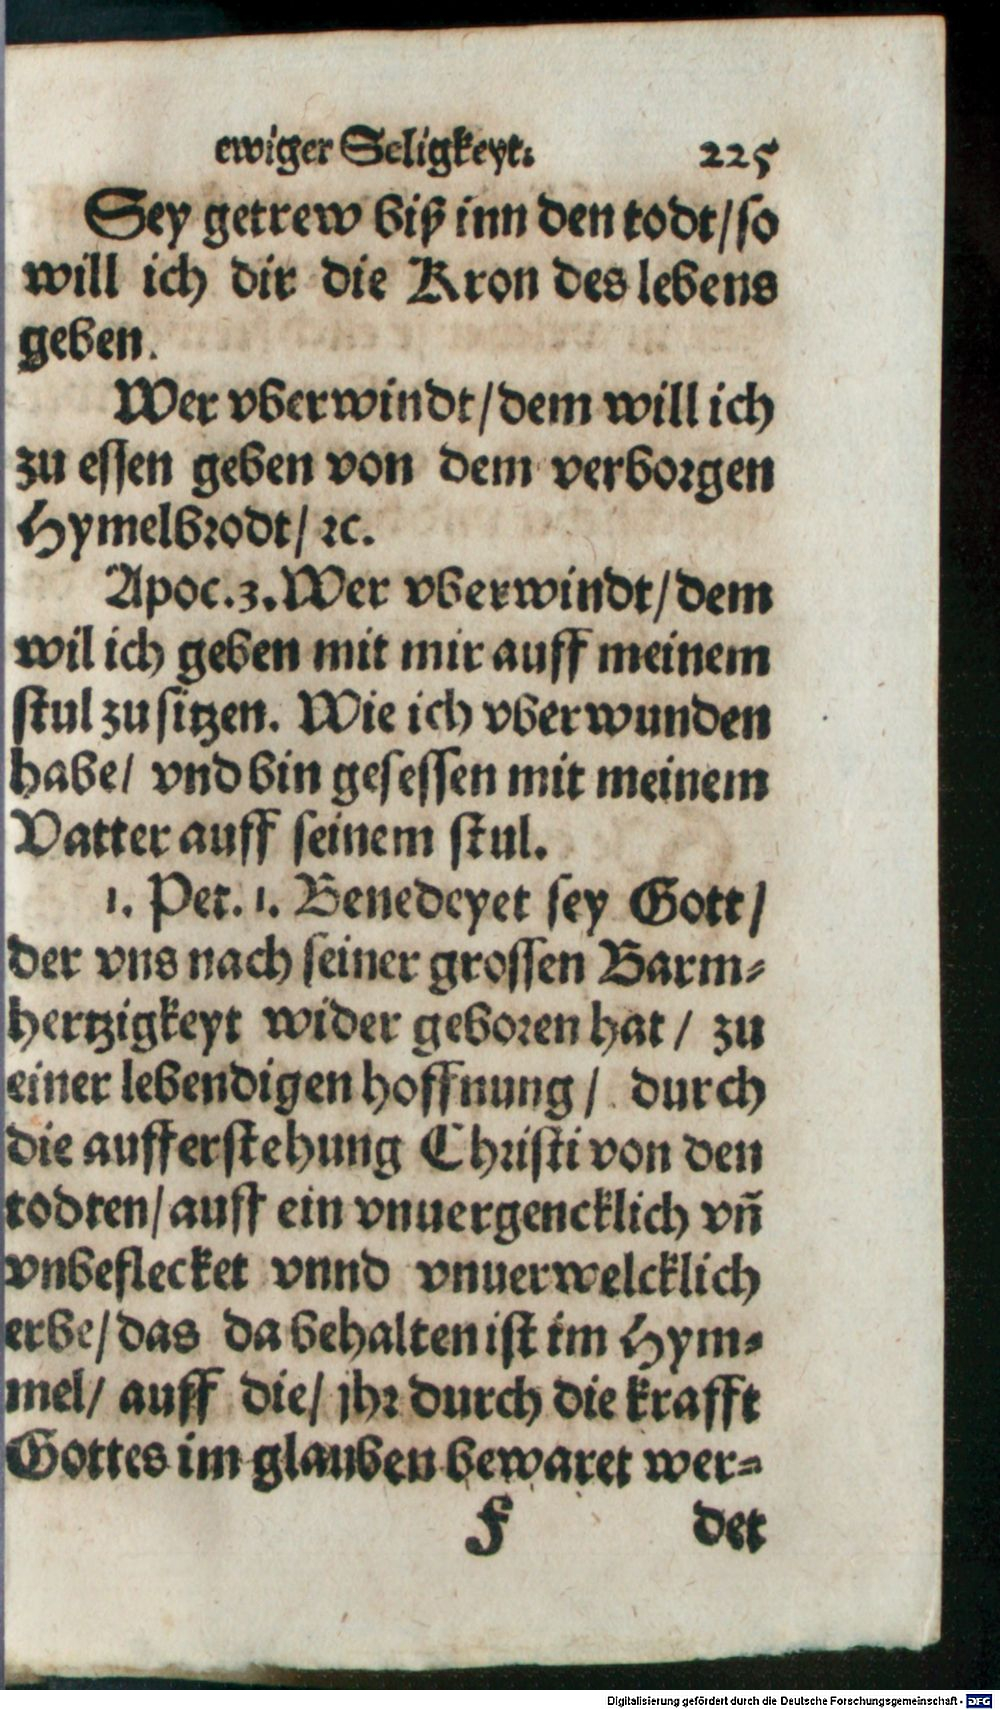 ewiger Seligkeyt. 225
Sey getrew biß inn den todt/ so
will ich dir die Kron des lebens
geben.
Wer vberwindt/ dem will ich
zu essen geben von dem verborgen
Hymelbrodt/ ꝛc.
Apoc. 3. Wer vberwindt/ dem
wil ich geben mit mir auff meinem
stul zu sitzen. Wie ich vberwunden
habe/ vnd bin gesessen mit meinem
Vatter auff seinem stul.
1. Pet. 1. Benedeyet sey Gott/
der vns nach seiner grossen Barm⸗
hertzigkeyt wider geboren hat/ zu
einer lebendigen hoffnung/ durch
die aufferstehung Christi von den
todten/ auff ein vnuergencklich vñ
vnbeflecket vnnd vnuerwelcklich
erbe/ das da behalten ist im Hym⸗
mel/ auff die/ jhr durch die krafft
Gottes im glauben bewaret wer⸗
f det
Digitalisierung gefördert durch die Deutsche Forschungsgemeinschaft - DFG